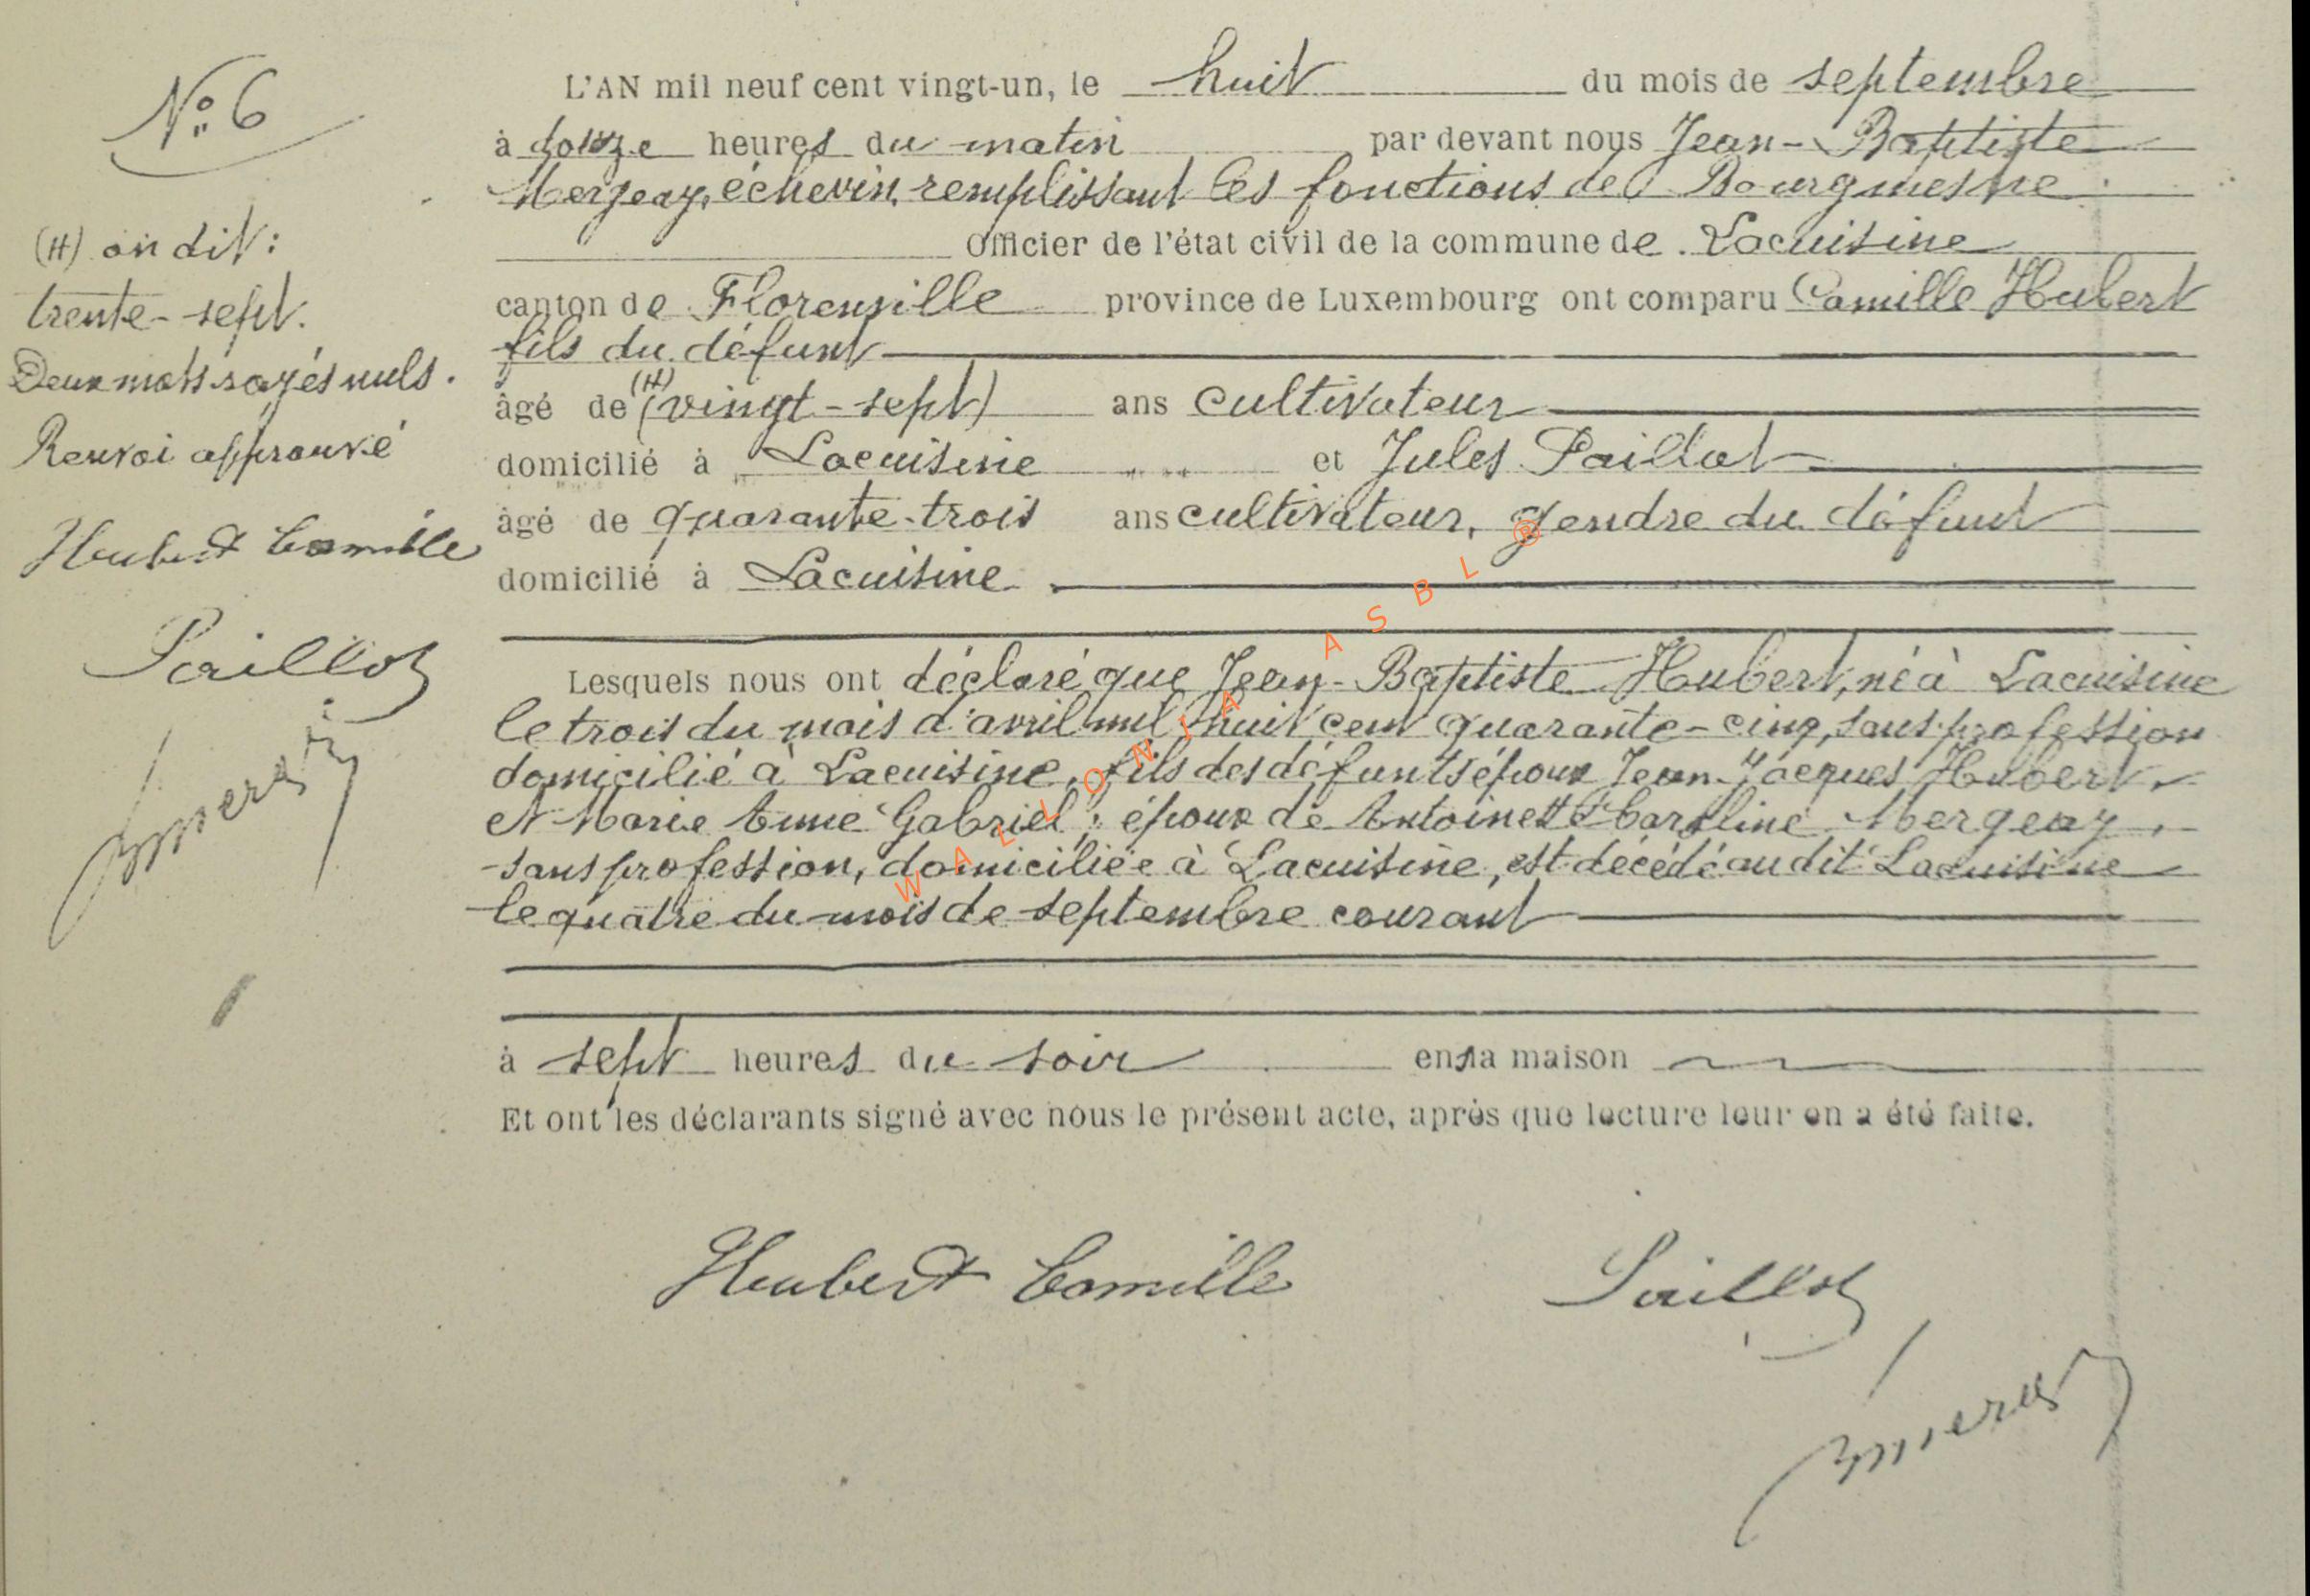 N° 6
(H) on dit:
trente-sept.
Deux mots rayés nuls.
Renvoi approuvé
Hubert Camille
Paillot
L'AN mil neuf cent vingt-un, le huit du mois de septembre
à douze heures du matin par devant nous Jean-Baptiste
Mergeay, échevin, remplissant les fonctions de Bourgmestre
Officier de l'état civil de la commune de Lacuisine
canton de Florenville province de Luxembourg ont comparu Camille Hubert
fils du défunt
âgé de (H) (vingt-sept) ans cultivateur
domicilié à Lacuisine et Jules Paillot
âgé de quarante-trois ans cultivateur, gendre du défunt
domicilié à Lacuisine
Lesquels nous ont déclaré que Jean-Baptiste Hubert, né à Lacuisine
le trois du mois d'avril mil huit cent quarante-cinq, sans profession
domicilié à Lacuisine, fils des défunts époux Jean-Jacques Hubert
et Marie Anne Gabriel; époux de Antoinette Caroline Mergeay,
sans profession, domiciliée à Lacuisine, est décédé au dit Lacuisine
le quatre du mois de septembre courant
à sept heures du soir en sa maison
Et ont les déclarants signé avec nous le présent acte, après que lecture leur en a été faite.
Hubert Camille Paillot
WALLONIA ASBL ®